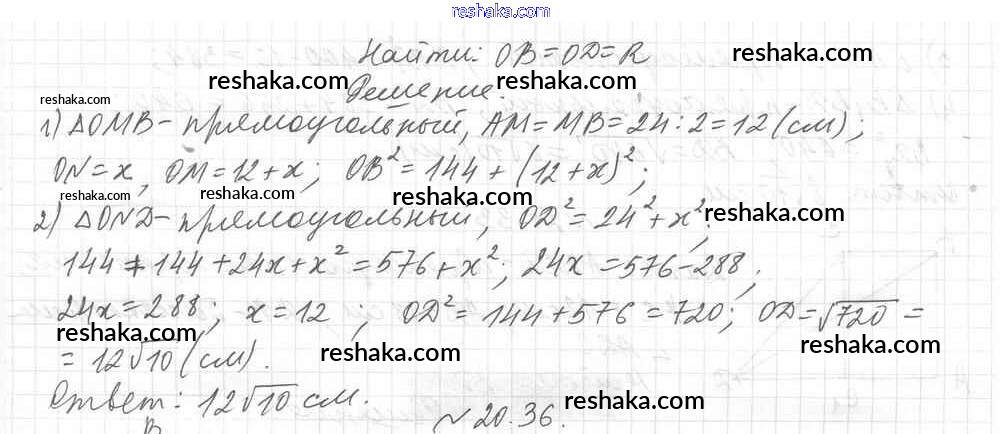 reshaka.com
Найти: OB=OD=R reshaka.com
reshaka.com reshaka.com
Решение:
reshaka.com
1) △OMB - прямоугольный, AM=MB=24:2=12 (см);
ON=x, OM=12+x; OB²=144+(12+x)²;
reshaka.com reshaka.com reshaka.com
2) △OND - прямоугольный, OD²=24²+x²; reshaka.com
144+144+24x+x²=576+x²; 24x=576-288;
24x=288; x=12; OD²=144+576=720; OD=√720=
reshaka.com reshaka.com
=12√10 (см). reshaka.com
Ответ: 12√10 см.
reshaka.com
№20.36.
B